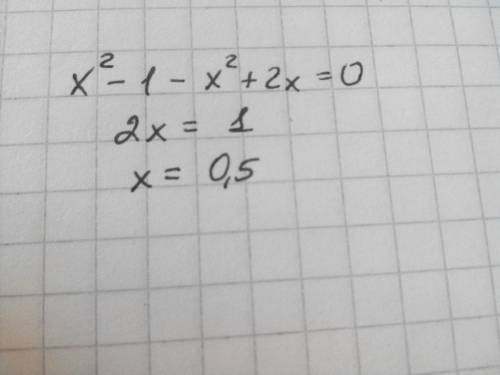 x² - 1 - x² + 2x = 0
2x = 1
x = 0,5